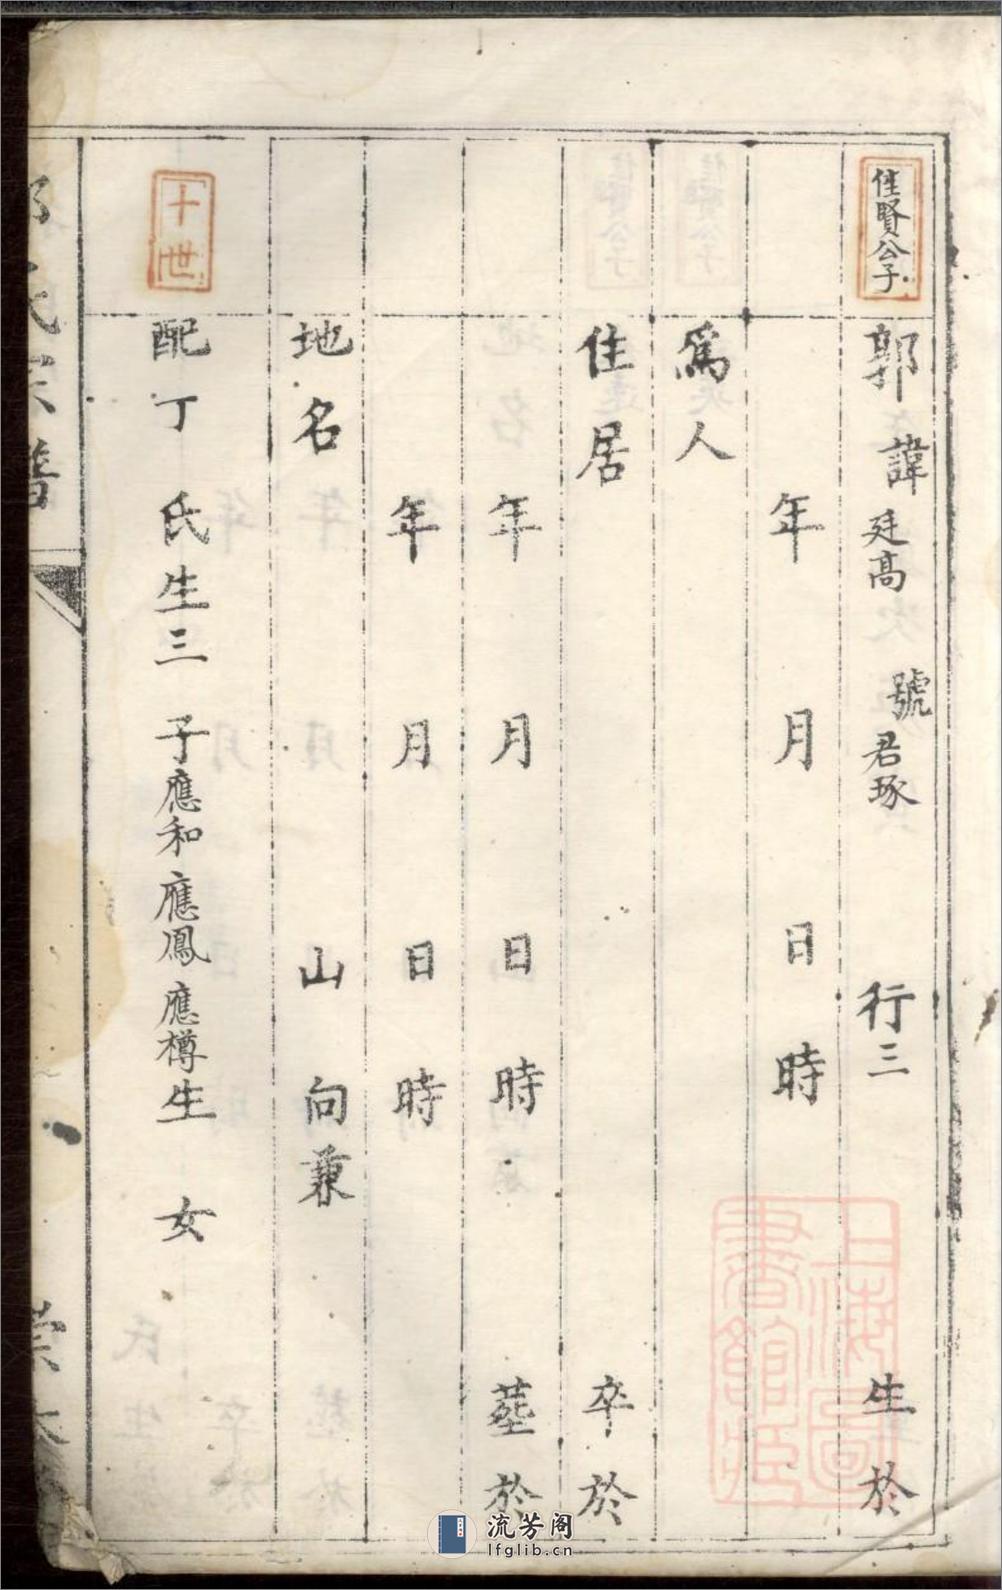 佳賢公子
郭 諱 廷高 號 君琢 行三 生於
年 月 日 時
為人
住居 卒於
年 月 日 時 塟於
年 月 日 時
地名 山 向 兼
十世
配丁 氏 生三 子 應和 應鳳 應樽 生 女
氏宗譜
上海圖書館藏
流芳阁
lfglib.cn